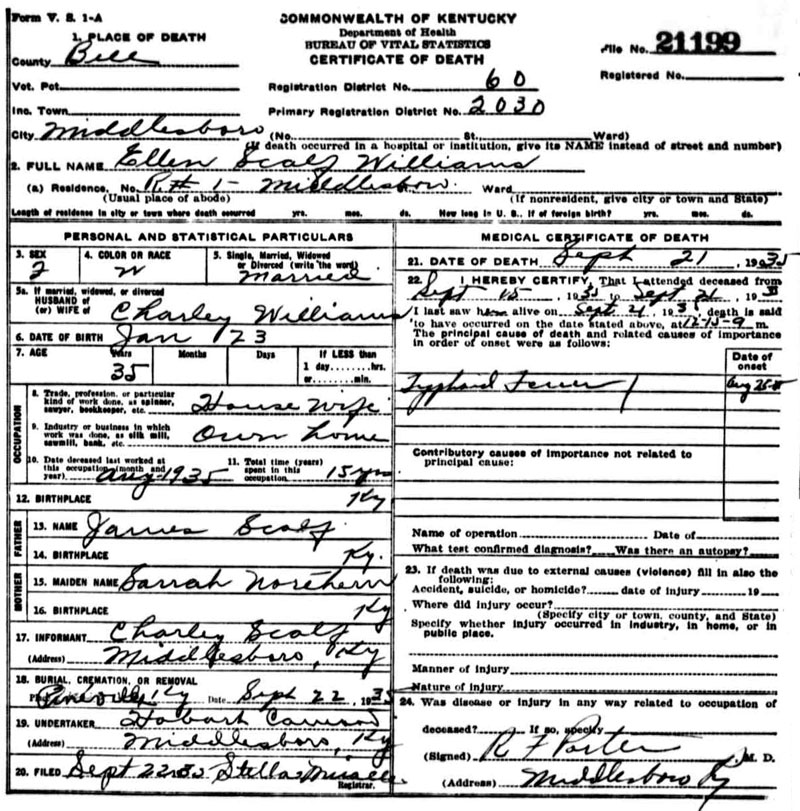 Form V. S. 1-A
COMMONWEALTH OF KENTUCKY
Department of Health
BUREAU OF VITAL STATISTICS
CERTIFICATE OF DEATH
File No. 21199
Registered No.
1. PLACE OF DEATH
County Bell
Vot. Pct.
Inc. Town
Registration District No. 60
Primary Registration District No. 2030
City Middlesboro (No. St., Ward)
(If death occurred in a hospital or institution, give its NAME instead of street and number)
2. FULL NAME Ellen Scalf Williams
(a) Residence. No. R # 1 - Middlesboro. Ward
(Usual place of abode) (If nonresident, give city or town and State)
Length of residence in city or town where death occurred yrs. mos. ds. How long in U. S., if of foreign birth? yrs. mos. ds.
PERSONAL AND STATISTICAL PARTICULARS
3. SEX
4. COLOR OR RACE W
5. Single, Married, Widowed
or Divorced (write the word)
Married
5a. If married, widowed, or divorced
HUSBAND of
(or) WIFE of Charley Williams
6. DATE OF BIRTH Jan 23
7. AGE Years Months Days If LESS than
35 1 day, hrs.
or min.
OCCUPATION
8. Trade, profession, or particular
kind of work done, as spinner,
sawyer, bookkeeper, etc. House wife
9. Industry or business in which
work was done, as silk mill,
sawmill, bank, etc. Own home
10. Date deceased last worked at
this occupation (month and
year) Aug-1935
11. Total time (years)
spent in this
occupation. 15 yrs
12. BIRTHPLACE Ky
FATHER
13. NAME James Scalf
14. BIRTHPLACE Ky.
MOTHER
15. MAIDEN NAME Sarrah Northern
16. BIRTHPLACE Ky
17. INFORMANT Charley Scalf
(Address) Middlesboro, Ky
18. BURIAL, CREMATION, OR REMOVAL
Pineville Ky Date Sept 22, 1935
19. UNDERTAKER Hobart
(Address) Middlesboro, Ky
20. FILED Sept 22 Stella Miracle
Registrar.
MEDICAL CERTIFICATE OF DEATH
21. DATE OF DEATH Sept 21, 1935
22. I HEREBY CERTIFY, That I attended deceased from
Sept 15, 1935 to Sept 21, 1935
I last saw her alive on Sept 21, 1935, death is said
to have occurred on the date stated above, at m.
The principal cause of death and related causes of importance
in order of onset were as follows:
Date of
onset
Typhoid Fever Aug 26
Contributory causes of importance not related to
principal cause:
Name of operation Date of
What test confirmed diagnosis? Was there an autopsy?
23. If death was due to external causes (violence) fill in also the
following:
Accident, suicide, or homicide? date of injury 19
Where did injury occur?
(Specify city or town, county, and State)
Specify whether injury occurred in industry, in home, or in
public place.
Manner of injury
Nature of injury
24. Was disease or injury in any way related to occupation of
deceased? If so, specify
(Signed) R F Porter M. D.
(Address) Middlesboro Ky